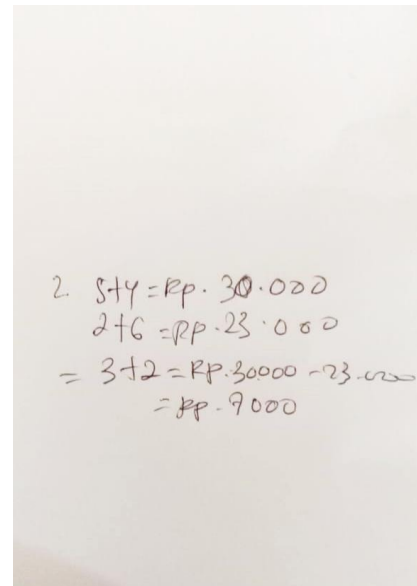 2. 5+4 = Rp. 30.000
2+6 = Rp. 23.000
= 3+2 = Rp. 30000 - 23.000
= Rp. 7000